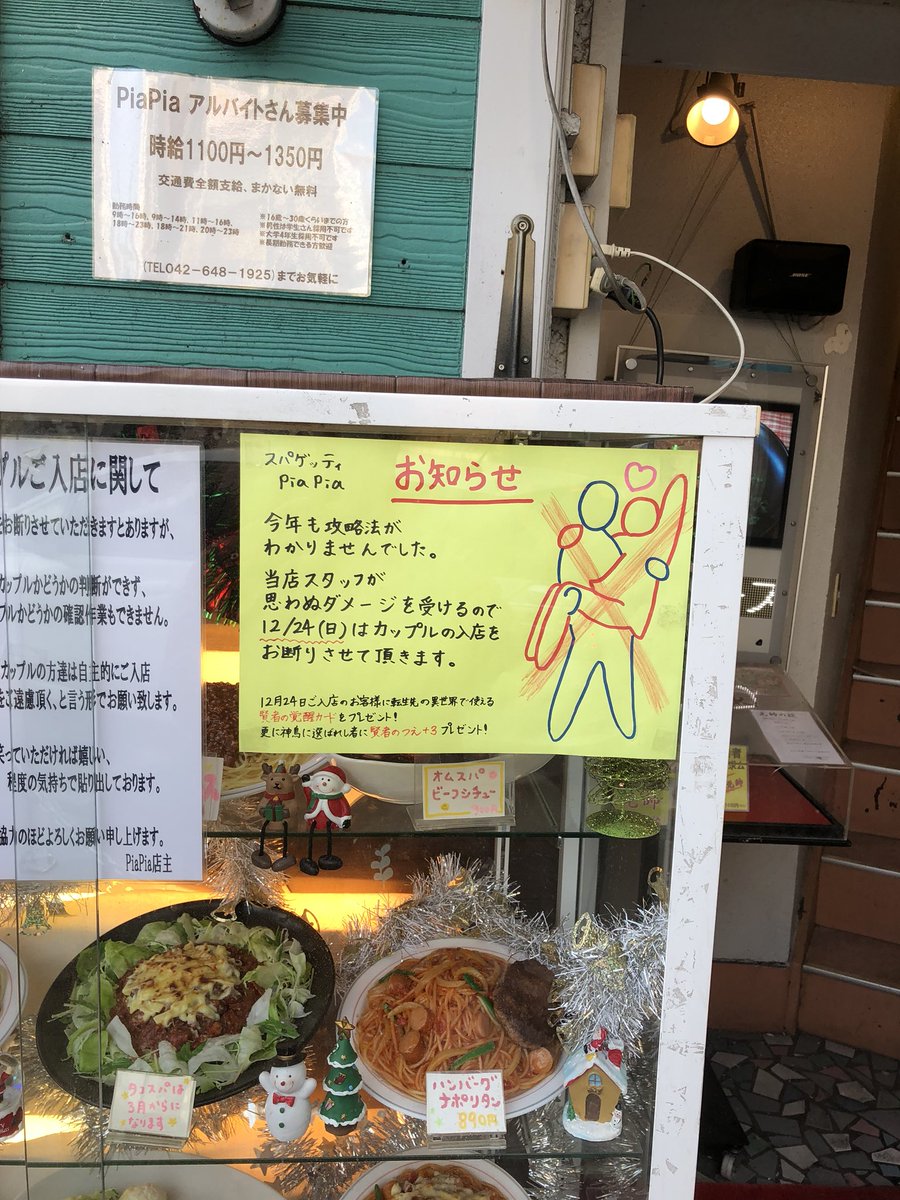 PiaPia アルバイトさん募集中
時給1100円～1350円
交通費全額支給、まかない無料
勤務時間
9時～16時、9時～14時、11時～16時、
18時～23時、18時～21時、20時～23時
※16歳～30歳くらいまでの方
※男性は学生さん採用不可です
※大学4年生採用不可です
※長期勤務できる方歓迎
(TEL042-648-1925)までお気軽に
BOSE
プルご入店に関して
お断りさせていただきますとありますが、
カップルかどうかの判断ができず、
プルかどうかの確認作業もできません。
カップルの方達は自主的にご入店
をご遠慮頂く、と言う形でお願い致します。
笑っていただければ嬉しい、
程度の気持ちで貼り出しております。
協力のほどよろしくお願い申し上げます。
PiaPia店主
スパゲッティ
PiaPia
お知らせ
今年も攻略法が
わかりませんでした。
当店スタッフが
思わぬダメージを受けるので
12/24(日)はカップルの入店を
お断りさせて頂きます。
12月24日ご入店のお客様に転生先の異世界で使える
賢者の覚醒カードをプレゼント!
更に神馬に選ばれし者に賢者のつえ+3プレゼント!
オムスパ
ビーフシチュー
タコスパは
3月からに
なります
ハンバーグ
ナポリタン
890円